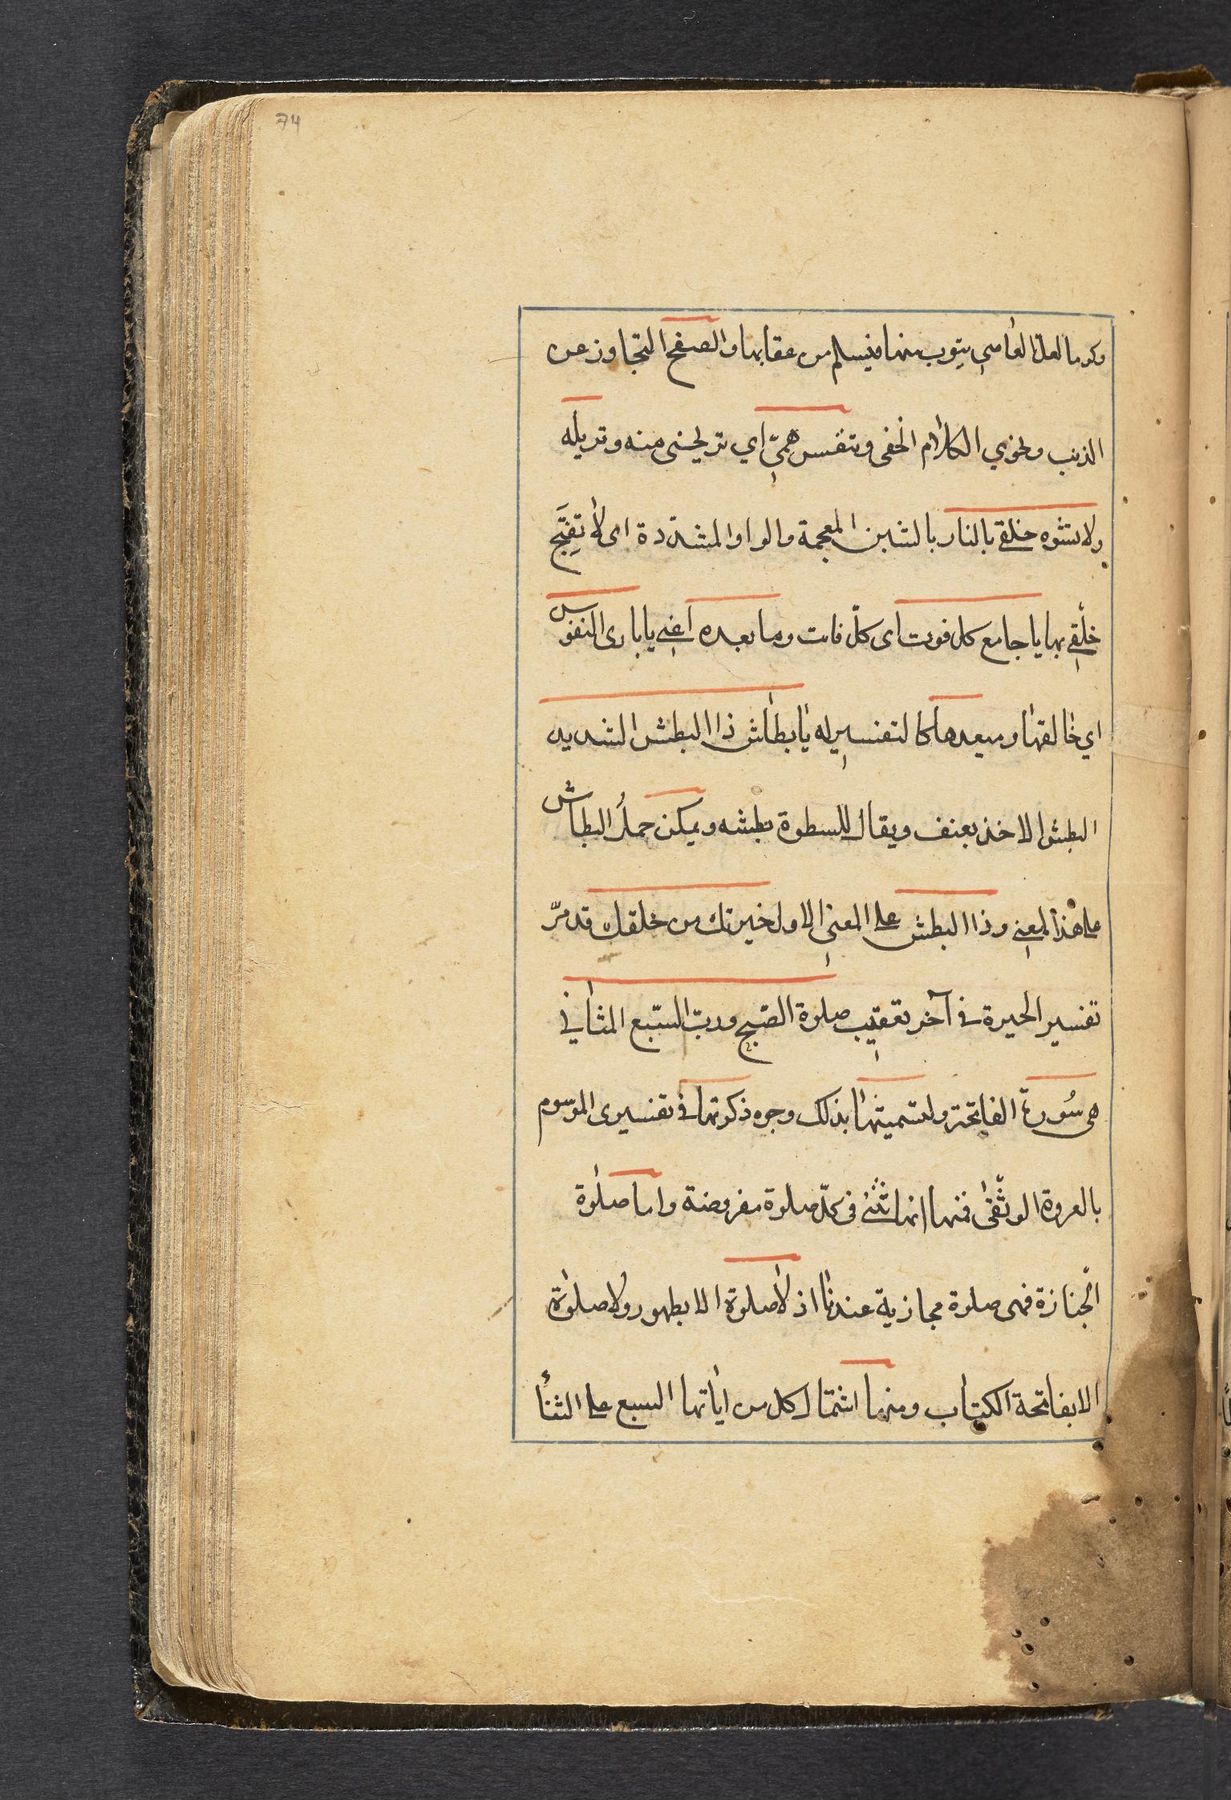 74
وكرما لعل العاصي يتوب منها فيسلم من عقابها والصفح التجاوز عن
الذنب وفحوي الكلام الخفى وتنفس همّي اي تريحنى منه وتزيله
ولا تشوه خلقي بالنار بالشين المعجمة والواو المشددة اى لا تقبّح
خلقي بها يا جامع كل فوت اى كلّ فائت وما بعده اعنى يا بارى النفوس
اي خالقها ومعيدها كالتفسير له يا بطاش ذا البطش الشديد
البطش الاخذ بعنف ويقال للسطوة بطشه ويمكن حمل البطاش
على هذا المعنى وذا البطش على المعنى الاول خيرتك من خلقك قد مرّ
تفسير الخيرة في آخر تعقيب صلوة الصّبح وربّ السّبع المثاني
هى سُورة الفاتحة ولتسميتها بذلك وجوه ذكرتها فى تفسيرى الموسوم
بالعروة الوثقى فمنها انها تثنى فى كلّ صلوة مفروضة واما صلوة
الجنازة فهى صلوة مجازية عندنا اذ لا صلوة الا بطهور ولا صلوة
الا بفاتحة الكتاب ومنها اشتمال كل من اياتها السبع على الثنأ